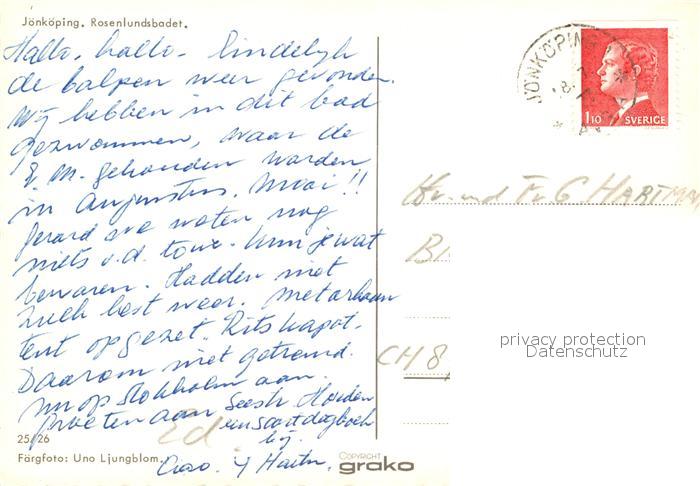 Jönköping. Rosenlundsbadet.
Hallo, hallo. Eindelijk
de balpen weer gevonden.
Wij hebben in dit bad
gezwommen, waar de
E.M. gehouden worden
in Augustus. Mooi!!
Gerard we weten nog
niets v.d. tour. Kun je wat
bewaren. Hadden niet
zulk best weer.
tent opgezet. Rits kapot.
Daarom niet getreurd.
Nu op Stokholm aan.
Groeten aan
een soort dagboek
bij.
Ciao.
Ed
25/26
Färgfoto: Uno Ljungblom.
COPYRIGHT
grako
JÖNKÖPING
1.10 SVERIGE
Hr. und Fr. G. HARTMAN
B
CH 8
privacy protection
Datenschutz